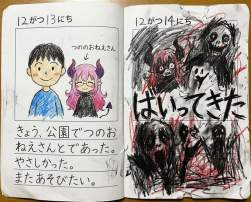 12がつ13にち
つののおねえさん
きょう、公園でつのお
ねえさんとであった。
やさしかった。
またあそびたい。
12がつ14にち
はいってきた